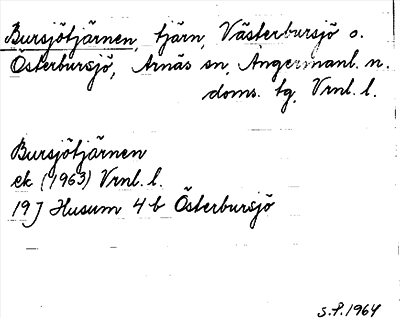 Bursjötjärnen, tjärn, Västerbursjö o.
Österbursjö, Arnäs sn, Ångermanl. n.
doms. tg, Vrnl. l.
Bursjötjärnen
ek (1963) Vrnl. l.
19 J Husum 4 b Österbursjö
S.P. 1964